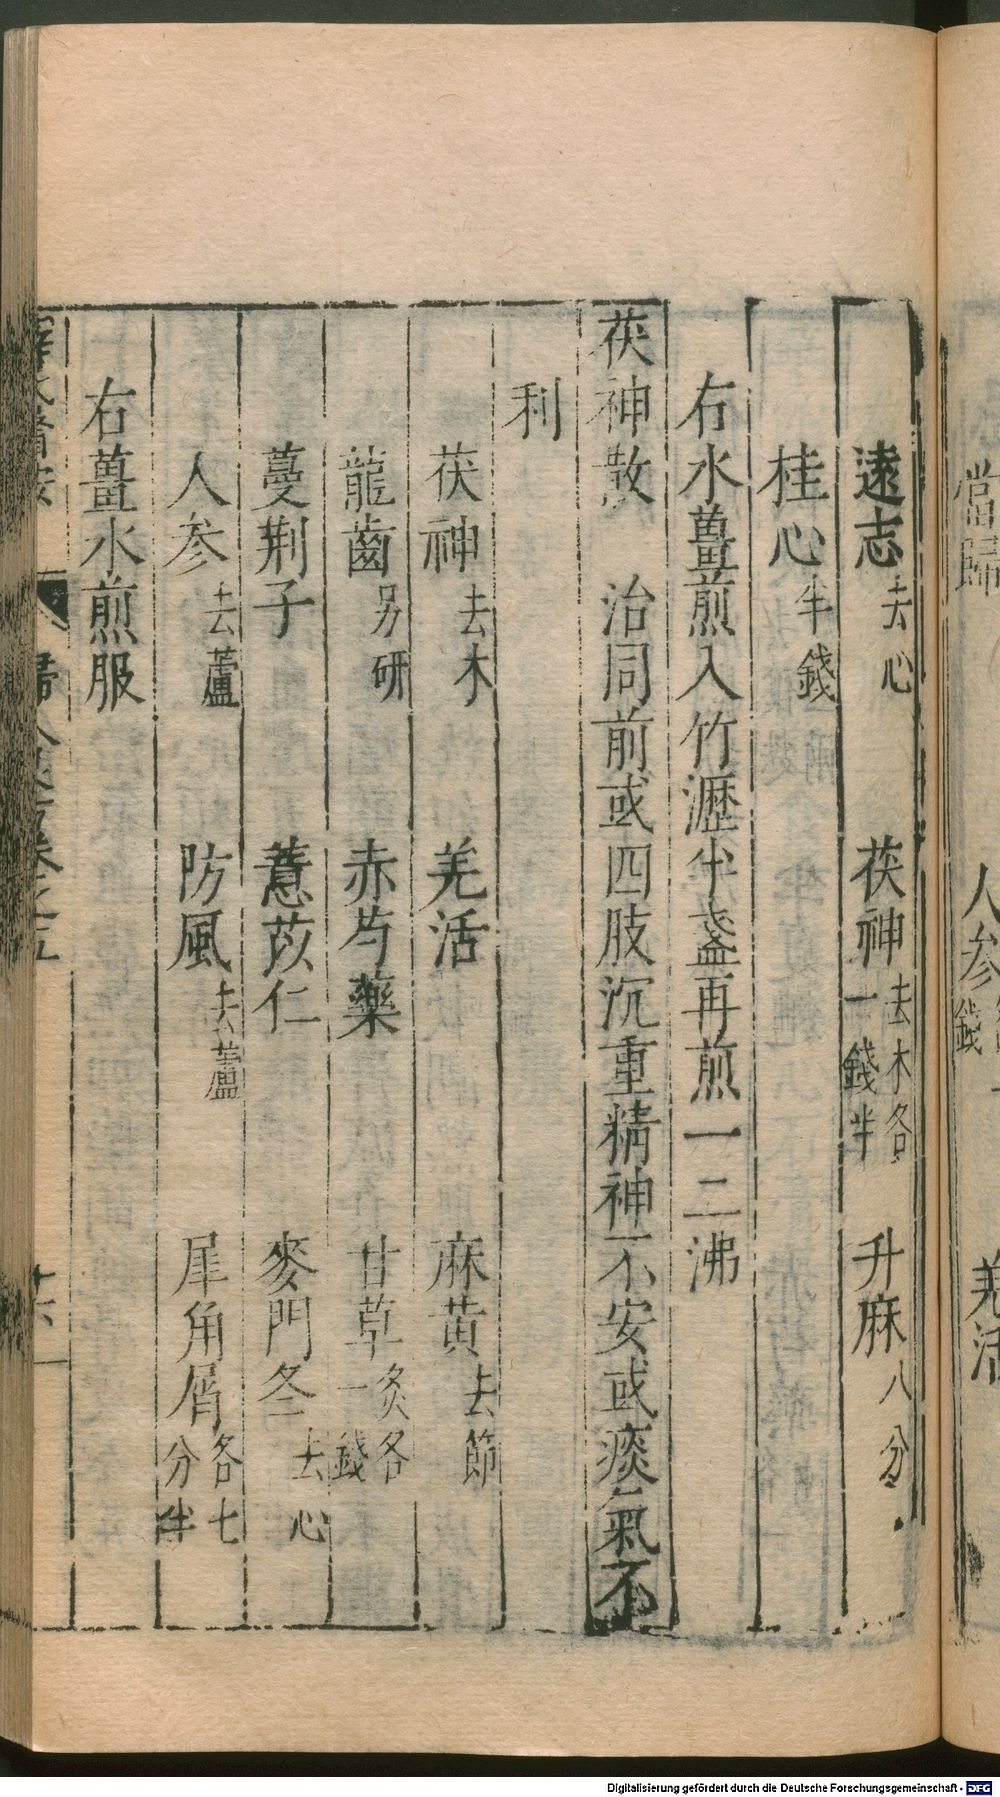 當歸　人參　羌活
錢
遠志去心　茯神去木各一錢半　升麻八分
桂心半錢
右水薑煎入竹瀝半盞再煎一二沸
茯神散　治同前或四肢沉重精神不安或痰氣不
利
茯神去木　羌活　麻黃去節
龍齒另研　赤芍藥　甘草炙各一錢
蔓荆子　薏苡仁　麥門冬去心
人參去蘆　防風去蘆　犀角屑各七分半
右薑水煎服
Digitalisierung gefördert durch die Deutsche Forschungsgemeinschaft - DFG